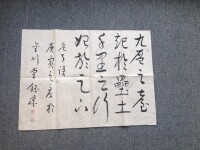 九层之臺
起於壘土
千里之行
始於足下
老子語
庚寅之春於